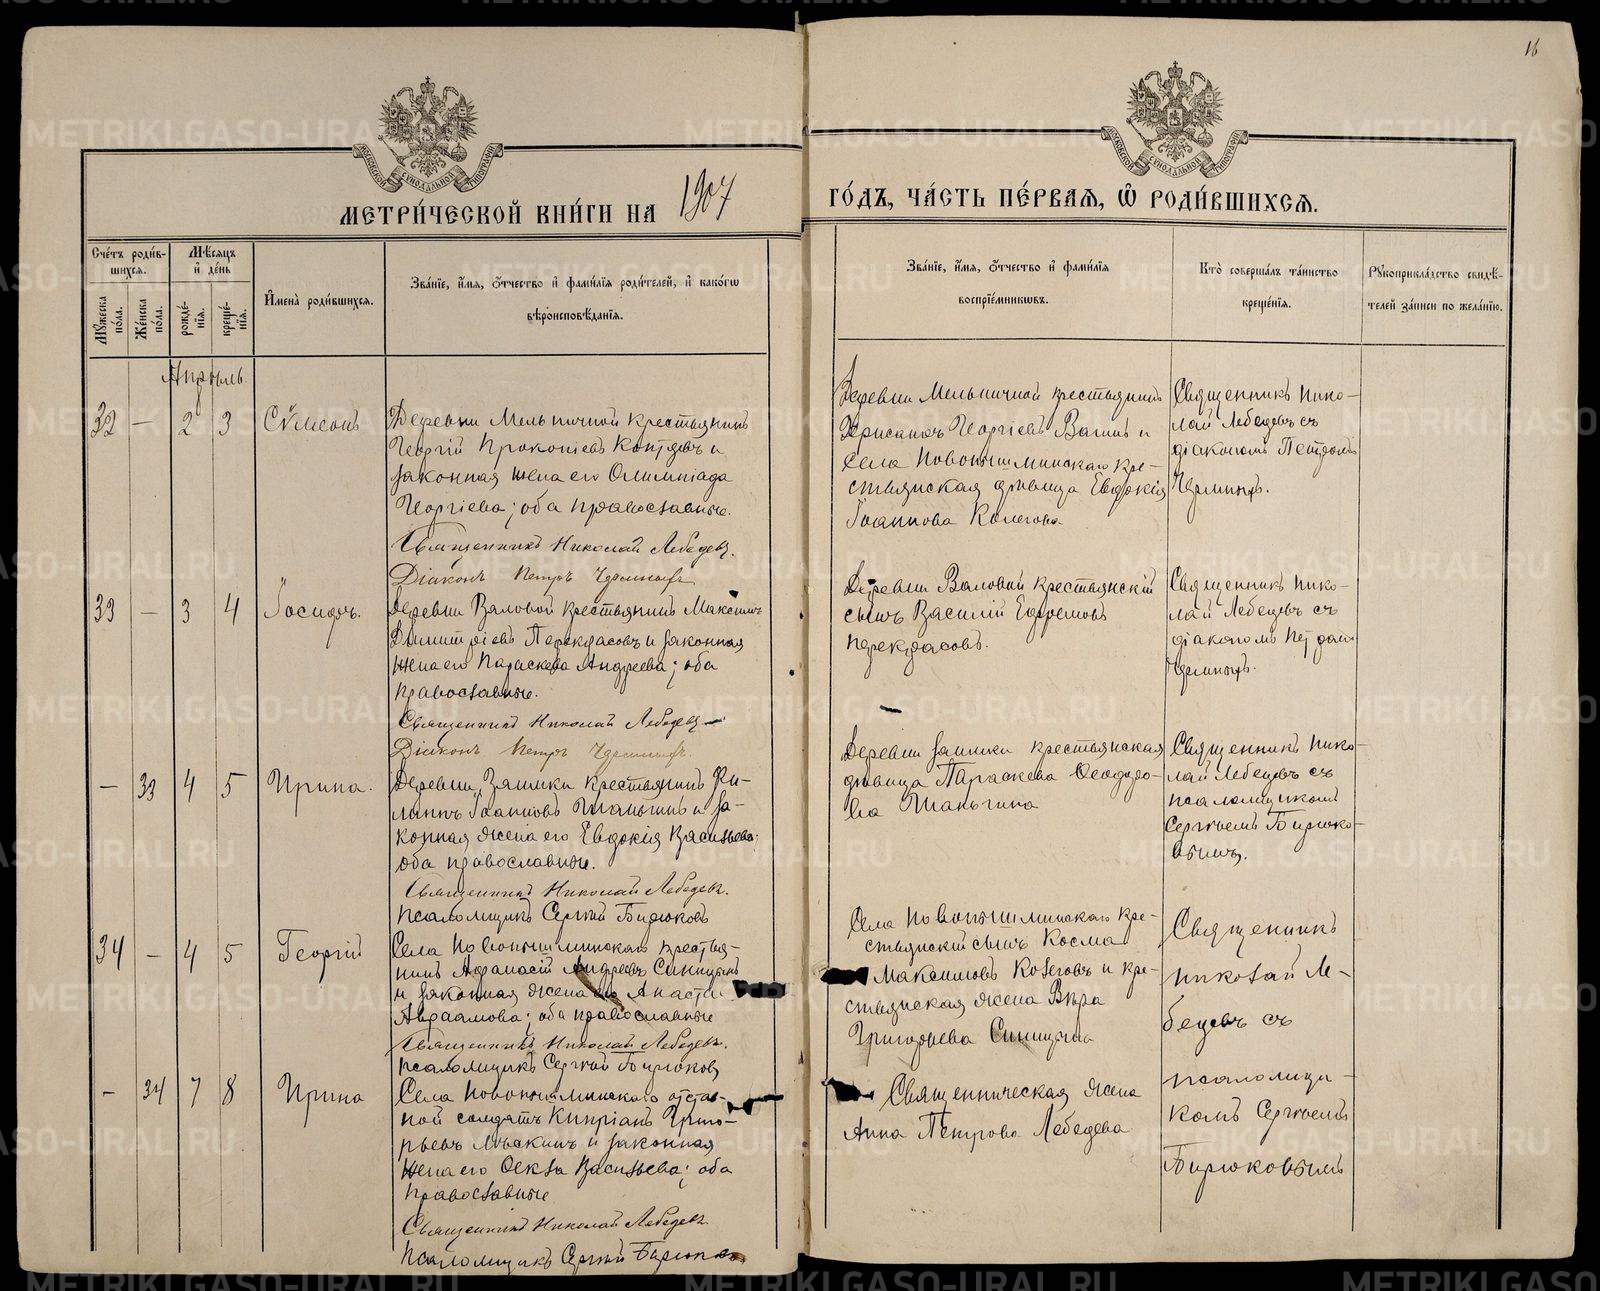 16
МЕТРИ́ЧЕСКОЙ КНИ́ГИ НА 1907
ГО́ДЪ, ЧА́СТЬ ПЕ́РВАЯ, Ѿ РОДИ́ВШИХСЯ.
Сче́тъ роди́в-
шихся.
Мꙋжеска по́ла.
Же́нска по́ла.
Мѣ́сяцъ и́ де́нь
рожде́-
нїя.
креще́-
нїя.
И҆мена̀ роди́вшихся.
Зва́нїе, и҆́мя, ѻ҆́тчество и҆ фами́лїя роди́телей, и҆ како́гѡ
вѣроисповѣ́данїя.
Зва́нїе, и҆́мя, ѻ҆́тчество и҆ фами́лїя
воспрїе́мникѡвъ.
Кто̀ соверша́лъ та́инство
креще́нїя.
Рꙋкоприкла́дство свидѣ́-
телей за́писи по жела́нїю.
Апрѣль
32 — 2 3 Сѵмеонъ
Деревни Мельничной крестьянинъ
Георгій Прокопіевъ и
законная жена его Олимпіада
Георгіева; оба православные.
Священникъ Николай Лебедевъ.
Діаконъ Петръ
Деревни Мельничной крестьянинъ
Георгіевъ Вагинъ и
села Новопышминскаго кре-
стьянская дѣвица Евдокія
Іоаннова
Священникъ Нико-
лай Лебедевъ съ
діакономъ Петромъ
33 — 3 4 Іосифъ.
Деревни Валовой крестьянинъ Максимъ
Димитріевъ Перекрасовъ и законная
жена его Параскева Андреева; оба
православные.
Священникъ Николай Лебедевъ
Діаконъ Петръ
Деревни Валовой крестьянскій
сынъ Василій Ефремовъ
Перекрасовъ.
Священникъ Нико-
лай Лебедевъ съ
діакономъ Петромъ
— 33 4 5 Ирина.
Деревни Заимки крестьянинъ Фи-
липпъ Іоанновъ Шаньгинъ и за-
конная жена его Евдокія Васильева;
оба православные.
Священникъ Николай Лебедевъ.
Псаломщикъ Сергій Бирюковъ
Деревни Заимки крестьянская
дѣвица Параскева Ѳеодоро-
ва Шаньгина
Священникъ Нико-
лай Лебедевъ съ
псаломщикомъ
Сергіемъ Бирюко-
вымъ.
34 — 4 5 Георгій
Села Новопышминскаго крестья-
нинъ Афанасій Андреевъ Синицынъ
и законная жена его Анаста
Авраамова; оба православные
Священникъ Николай Лебедевъ.
Псаломщикъ Сергій Бирюковъ
Села Новопышминскаго кре-
стьянскій сынъ Косма
Максимовъ Колеговъ и кре-
стьянская жена Вѣра
Григорьева Синицына
Священникъ
Николай Ле-
бедевъ съ
псаломщи-
комъ Сергіемъ
Бирюковымъ
— 34 7 8 Ирина
Села Новопышминскаго отстав-
ной солдатъ Кипріанъ Григо-
рьевъ и законная
жена его Ѳекла Васильева; оба
православные
Священникъ Николай Лебедевъ
Псаломщикъ Сергій Бирюковъ
Священническая жена
Анна Петрова Лебедева
METRIKI.GASO-URAL.RU